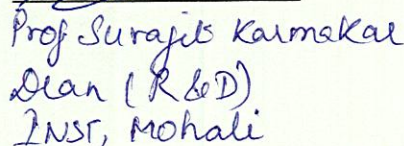 Prof Surajit Karmakar
Dean (R&D)
INST, Mohali